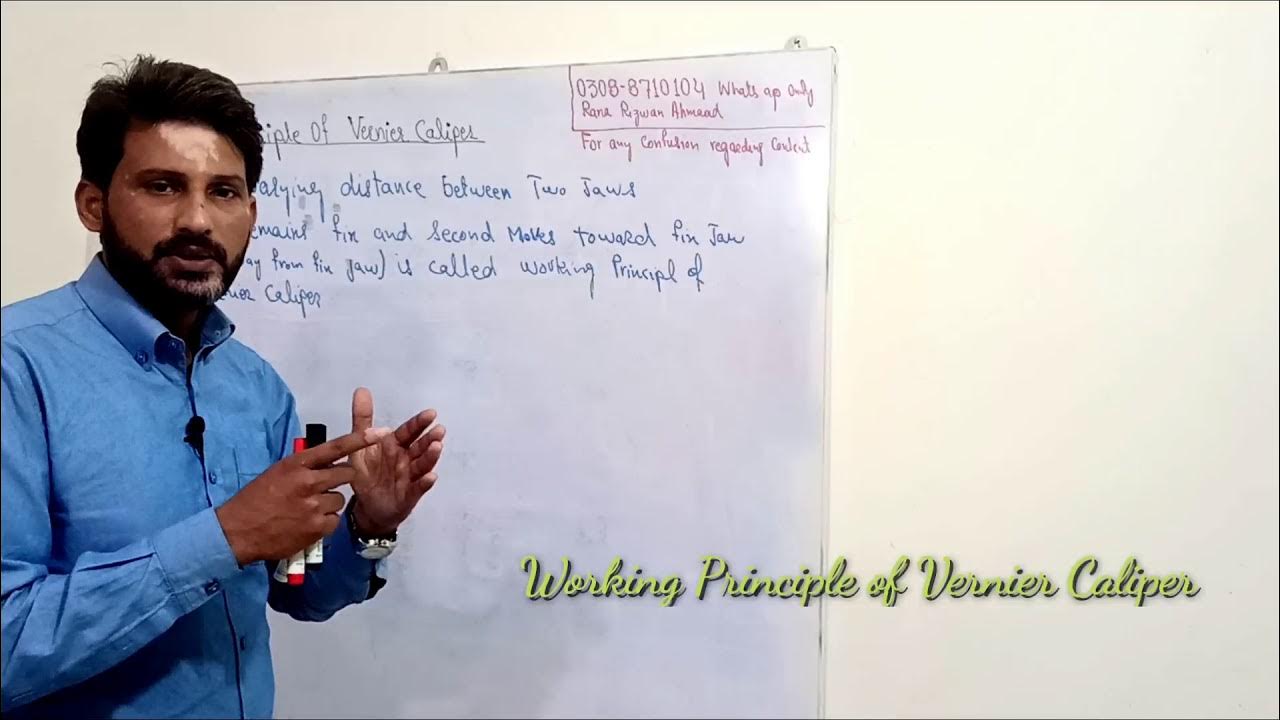 0308-8710104 Whats ap only
Rana Rizwan Ahmaad
For any Confusion regarding Content
iple Of Vernier Caliper
arying distance between Two Jaws
emains fix and Second Moves toward fix Jaw
ay from fix Jaw) is called working Principl of
nier Caliper
Working Principle of Vernier Caliper